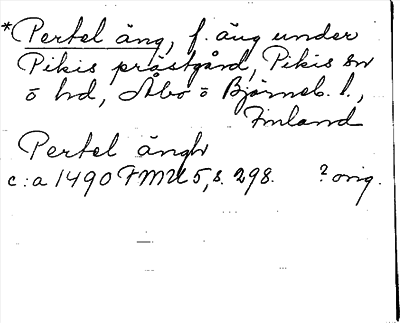 *Pertel äng, f. äng under
Pikis prästgård, Pikis sn
o hd, Åbo o Björneb. l.,
Finland
Pertel ängh
c:a 1490 FMU 5, s. 298. ? orig.